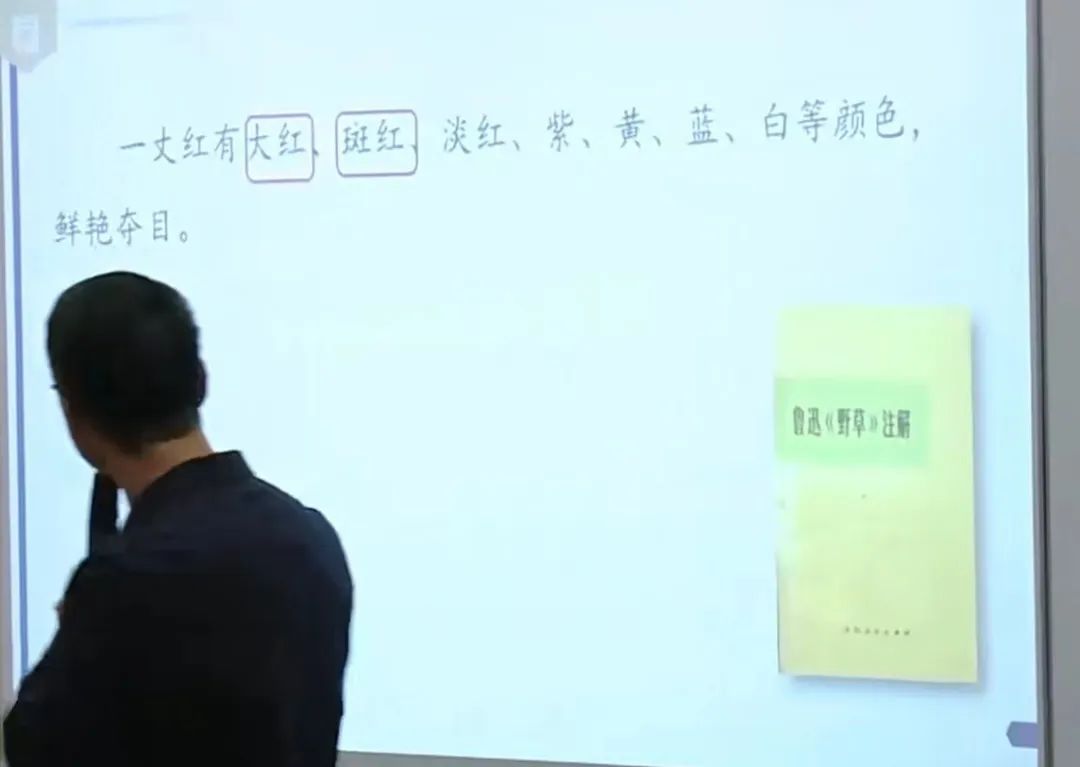 一丈红有大红、斑红、淡红、紫、黄、蓝、白等颜色，
鲜艳夺目。
鲁迅《野草》注解